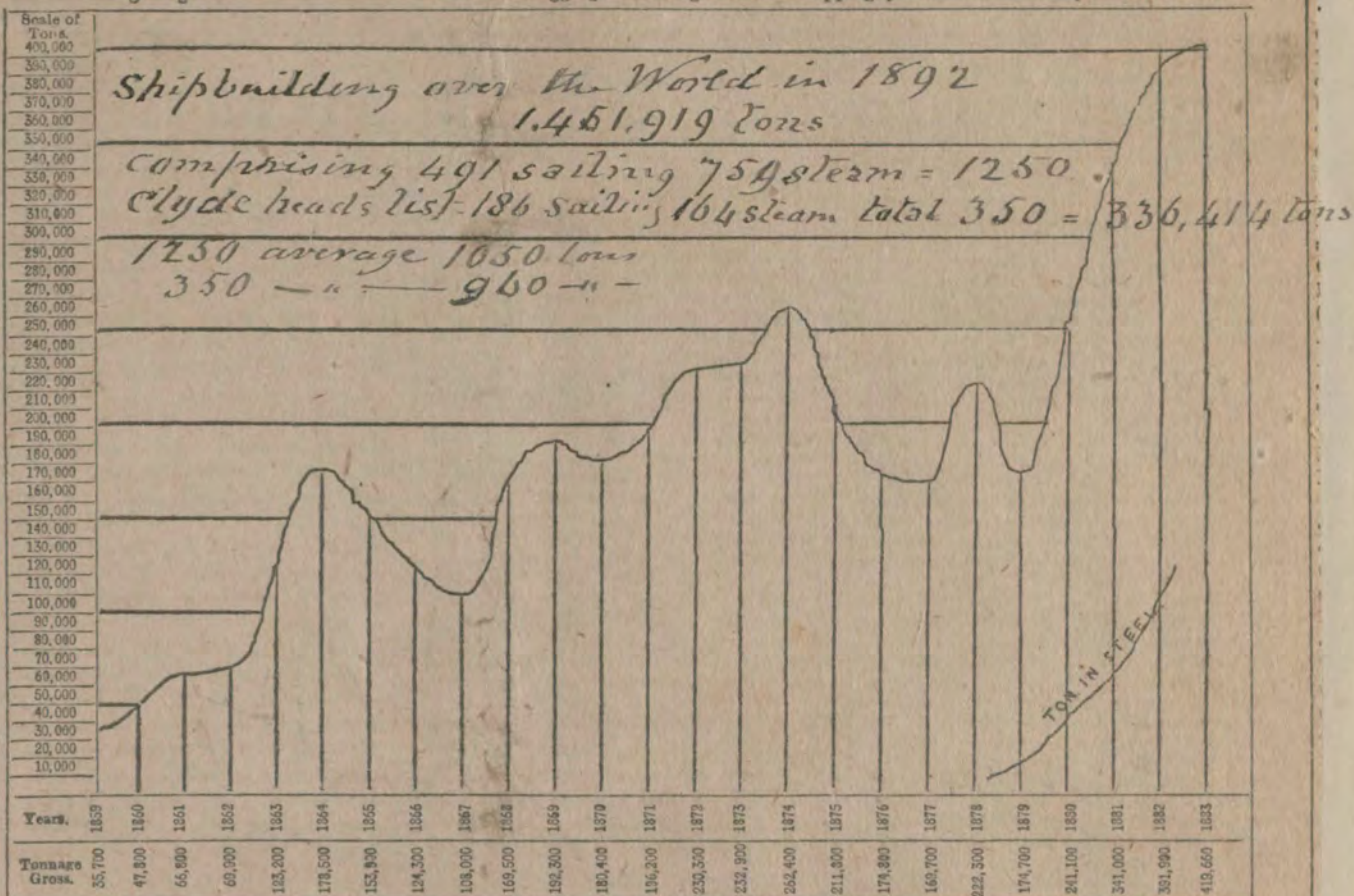 Scale of
Tons.
400,000
390,000
380,000
370,000
360,000
350,000
340,000
330,000
320,000
310,000
300,000
290,000
280,000
270,000
260,000
250,000
240,000
230,000
220,000
210,000
200,000
190,000
180,000
170,000
160,000
150,000
140,000
130,000
120,000
110,000
100,000
90,000
80,000
70,000
60,000
50,000
40,000
30,000
20,000
10,000
Shipbuilding over the World in 1892
1.451.919 Tons
comprising 491 sailing 759 steam = 1250.
Clyde heads list - 186 sailing 164 steam total 350 = 336,414 tons
1250 average 1050 tons
350 — " — 960 — " —
TON. IN STEEL
Years. 1859 1860 1861 1862 1863 1864 1865 1866 1867 1868 1869 1870 1871 1872 1873 1874 1875 1876 1877 1878 1879 1880 1881 1882 1883
Tonnage
Gross. 35,700 47,800 66,800 69,900 123,200 178,500 153,900 124,300 108,000 169,500 192,300 180,400 196,200 230,300 232,900 262,400 211,800 174,800 169,700 222,300 174,700 241,100 341,000 391,900 419,660